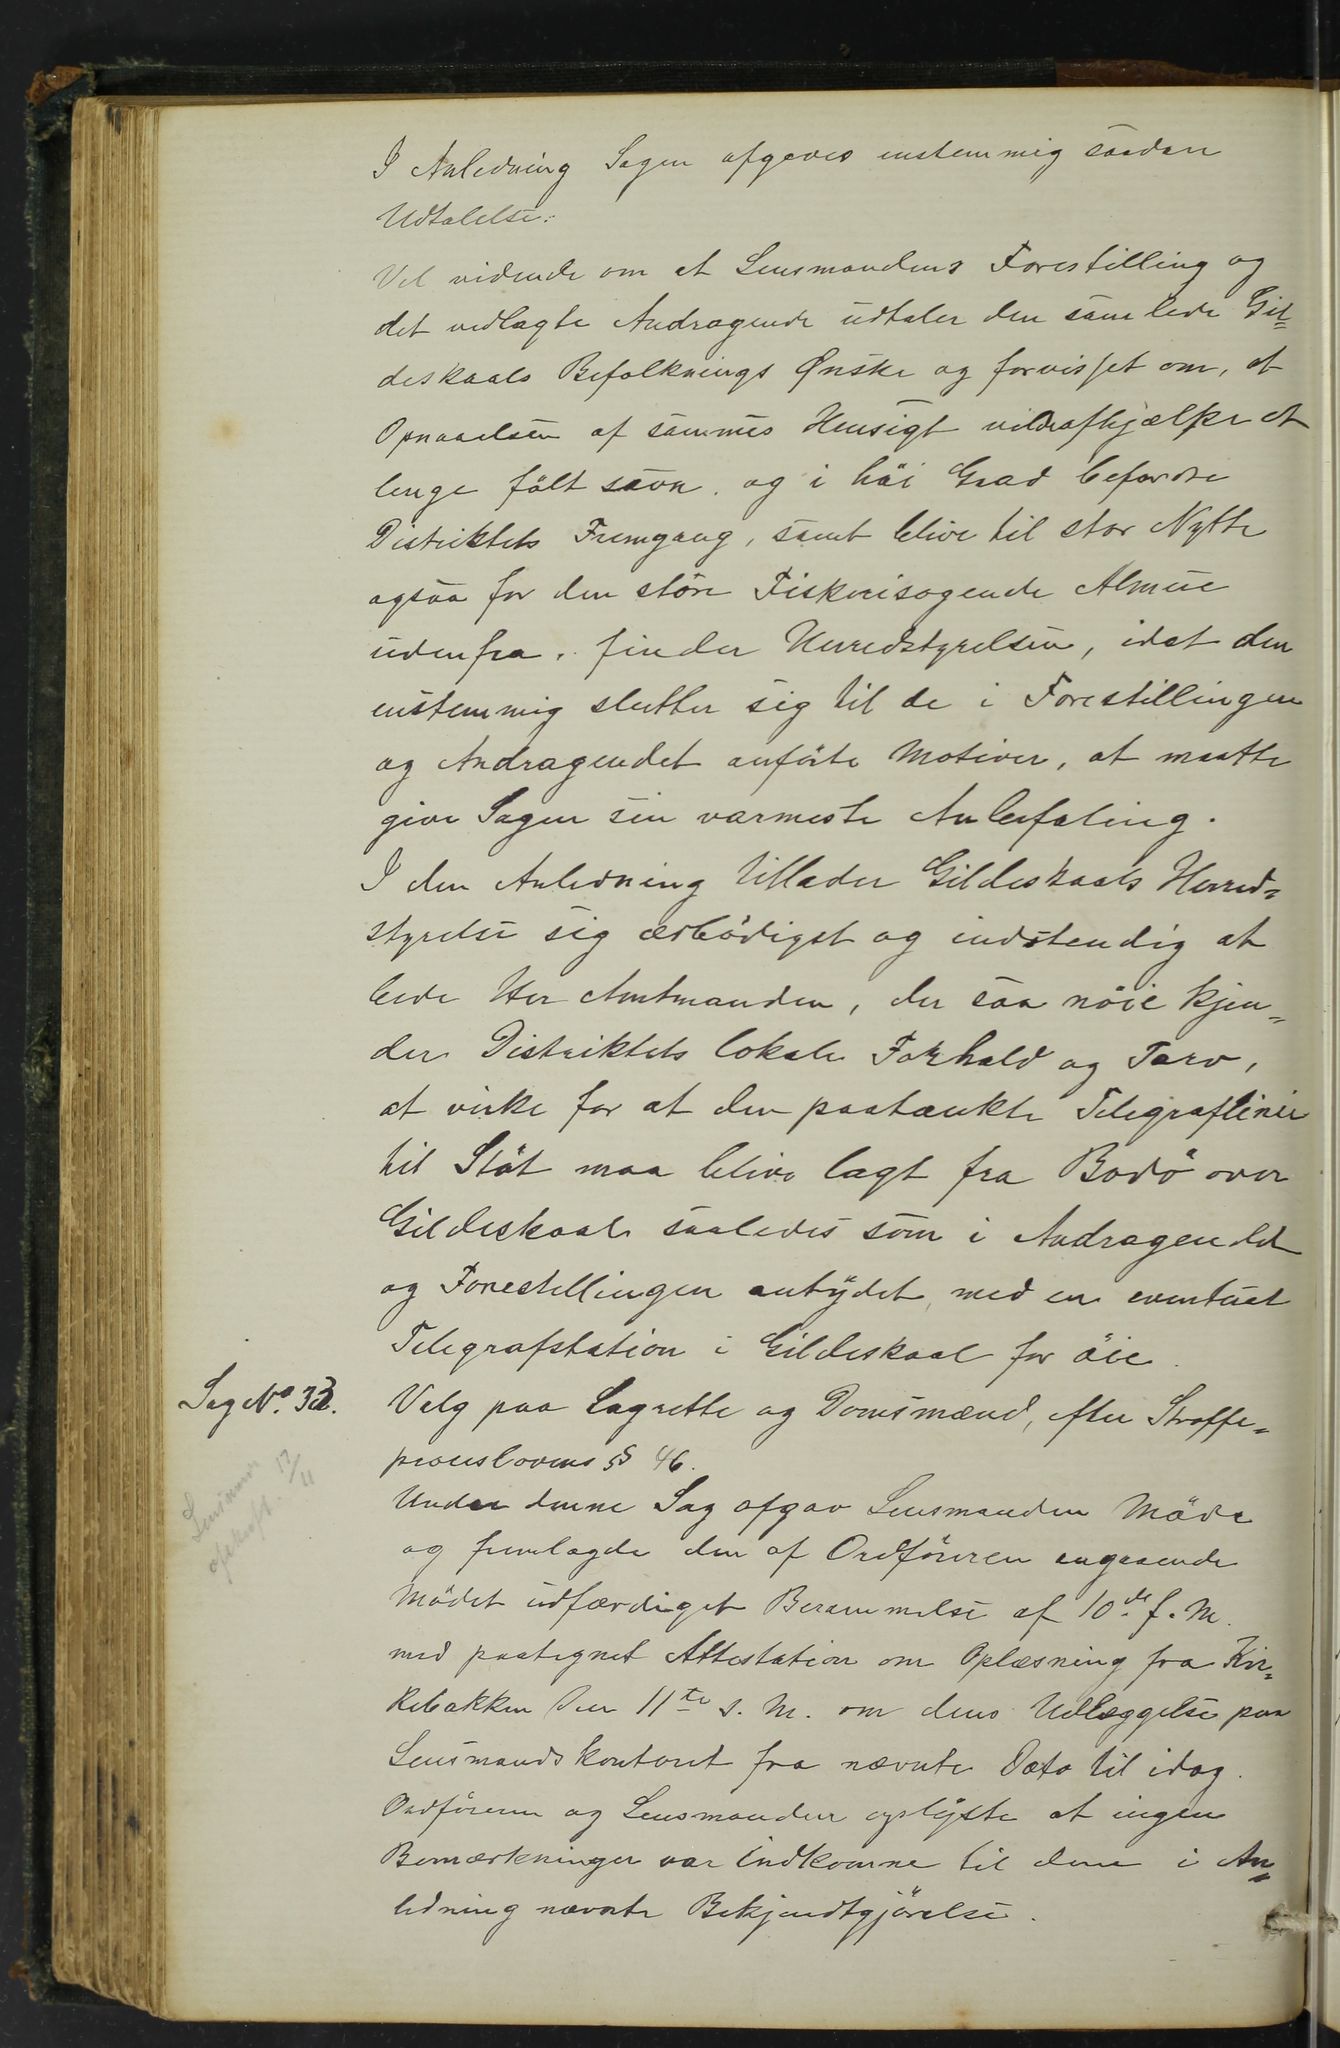 I Anledning Sagen afgaves enstemmig saadan
Udtalelse:
Vel vidende om at Lensmandens Forestilling og
det vedlagte Andragende udtaler den samlede Gil=
deskaals Befolknings Ønske og forvisset om, at
Opnaaelsen af sammes Hensigt vilde afhjælpe et
lenge fölt savn og i höi Grad befordre
Distriktets Fremgang, samt blive til stor Nytte
ogsaa for den störe Fiskerisøgende Almue
udenfra, finder Herredstyrelsen, idet den
enstemmig slutter sig til de i Forestillingen
og Andragendet anförte Motiver, at maatte
give Sagen sin varmeste Anbefaling.
I den Anledning tillader Gildeskaals Herred=
styrelse sig ærbödigst og indstendig at
bede Her Amtmanden, der saa nöie kjen=
der Distriktets lokale Forhold og Tarv,
at virke for at den paatænkte Telegraflinie
til Stöt maa blive lagt fra Bodö over
Gildeskaal saaledes som i Andragendet
og Forestillingen antydet, med en eventuel
Telegrafstation i Gildeskaal for öie.
Sag No. 33.
Valg paa Lagrette og Domsmænd, efter Straffe=
proceslovens § 46.
Under denne Sag afgav Lensmanden Möde
og fremlagde den af Ordföreren angaaende
Mödet udfærdiget Berammelse af 10de f. M.
med paategnet Attestation om Oplæsning fra Kir=
kebakken den 11te s. M. om dens Udlæggelse paa
Lensmandskontoret fra nævnte Dato til idag.
Ordföreren og Lensmanden oplyste at ingen
Bemærkninger var indkomne til dem i An=
ledning nævnte Bekjendtgjörelse.
17/11